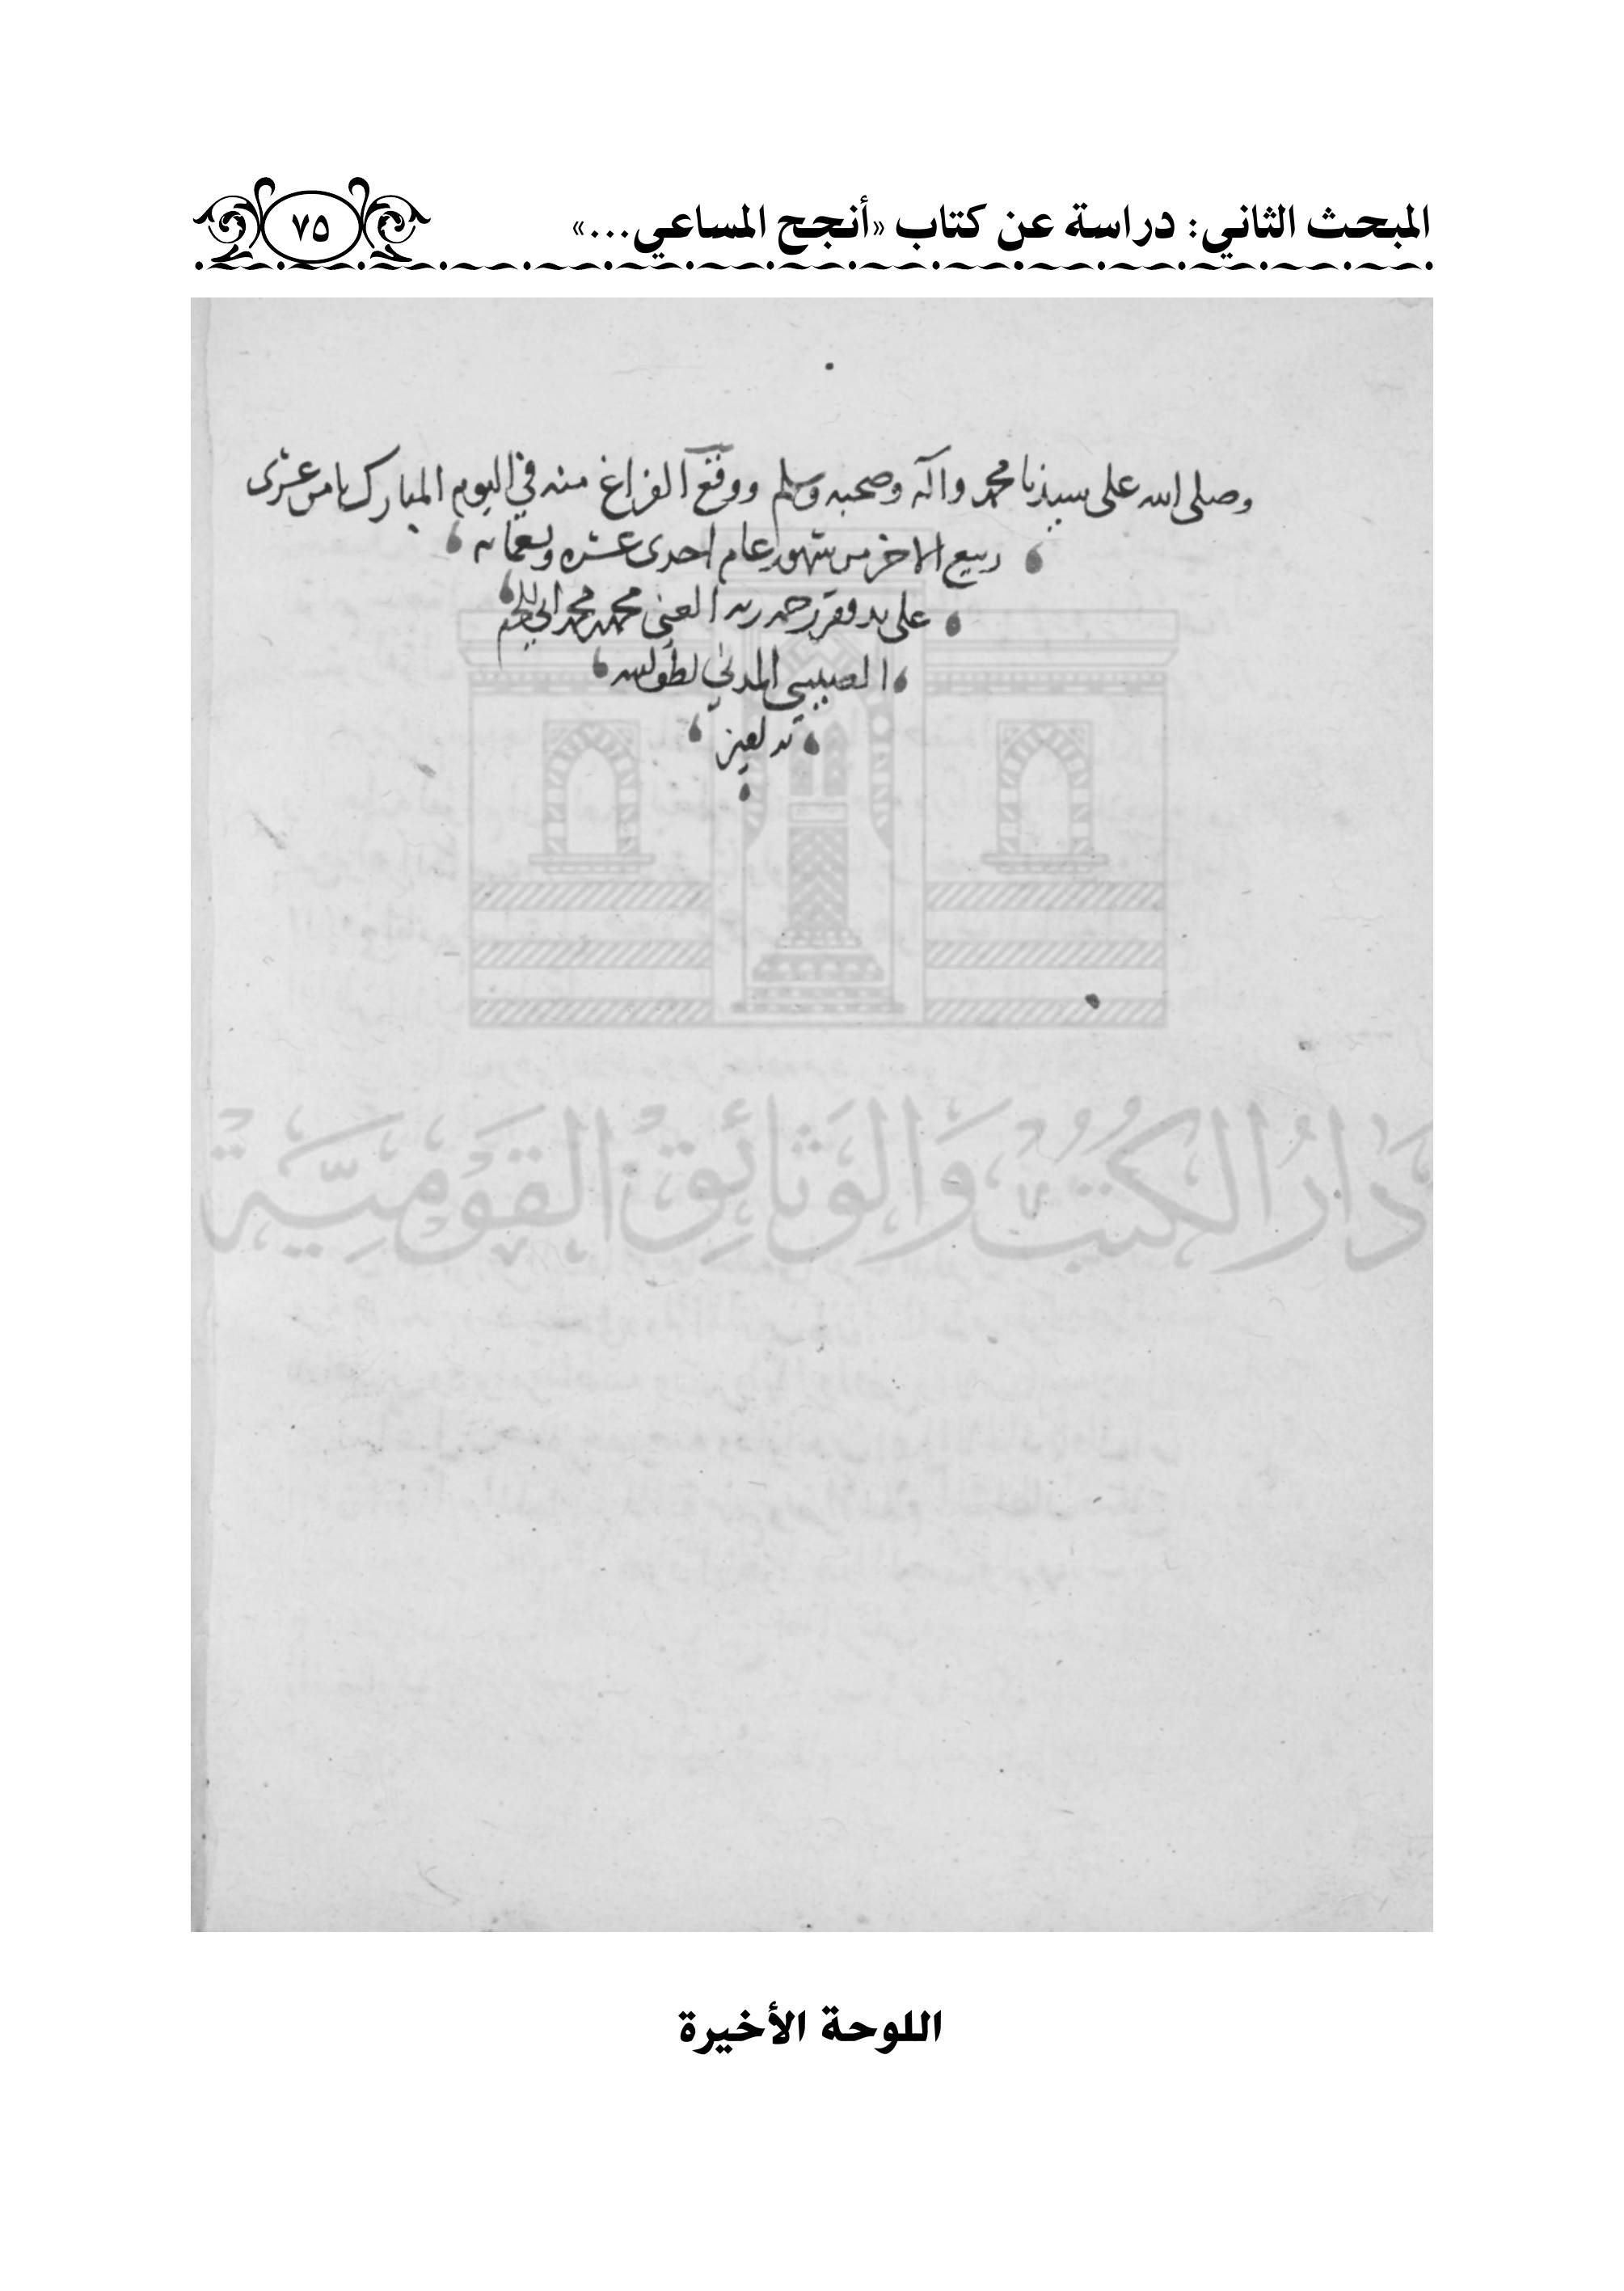 المبحث الثاني: دراسة عن كتاب «أنجح المساعي...»
٧٥
وصلى الله على سيدنا محمد وآله وصحبه وسلم ووقع الفراغ منه في اليوم المبارك ثامن عشرى
ربيع الاخر من شهور عام احدى عشره وتسعمائه
على يد فقير رحمة ربه الغني محمد بن محمد ابي
المدني
دَارُ الكُتُبِ وَالوَثَائِقِ القَوْمِيَّةِ
اللوحة الأخيرة